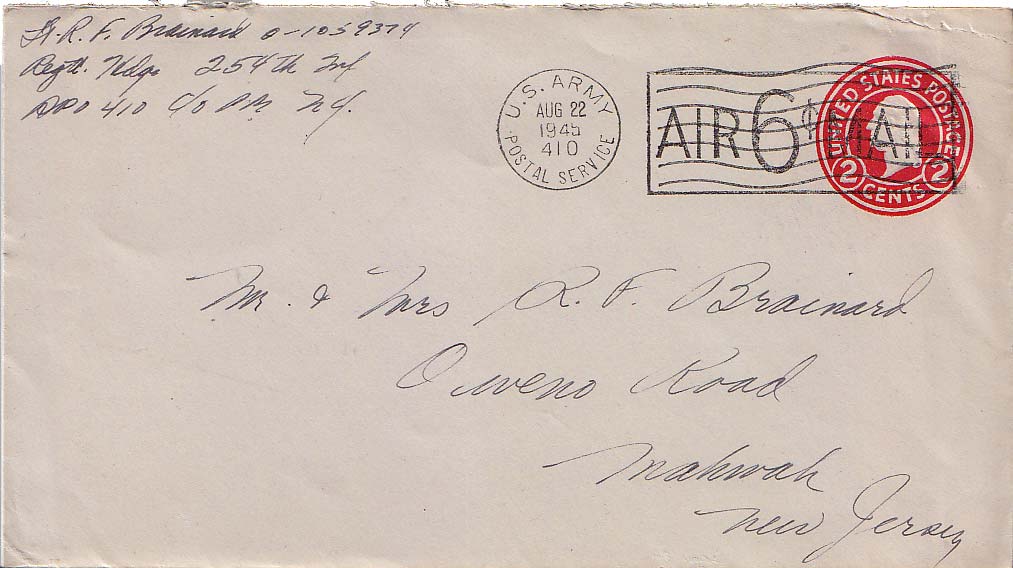 Lt. R. F. Brainard O-1059374
Regtl. Hdqs 254th Inf
APO 410 c/o P.M. N.Y.
U.S. ARMY
AUG 22
1945
410
POSTAL SERVICE
AIR 6¢ MAIL
UNITED STATES POSTAGE
2 CENTS 2
Mr. & Mrs R. F. Brainard
Oweno Road
Mahwah
New Jersey